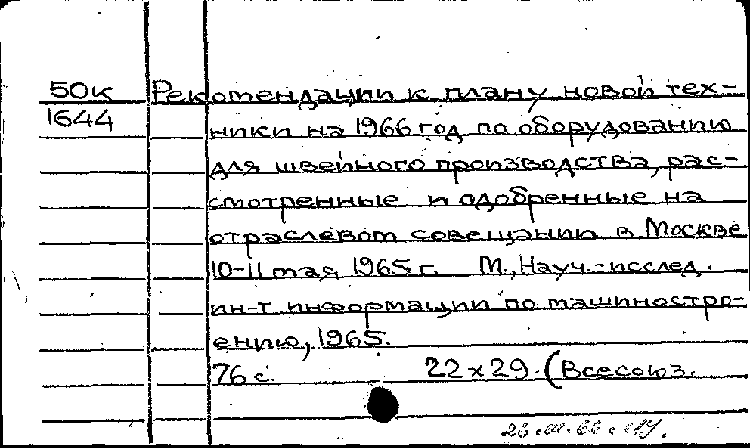 50к Рекомендации к плану новой тех-
1644 ники на 1966 год по оборудованию
для швейного производства, рас-
смотренные и одобренные на
отраслевом совещании в Москве
10-11 мая 1965 г. М., Науч.-исслед.
ин-т информации по машиностро-
ению, 1965.
76 с. 22 х 29. (Всесоюз.